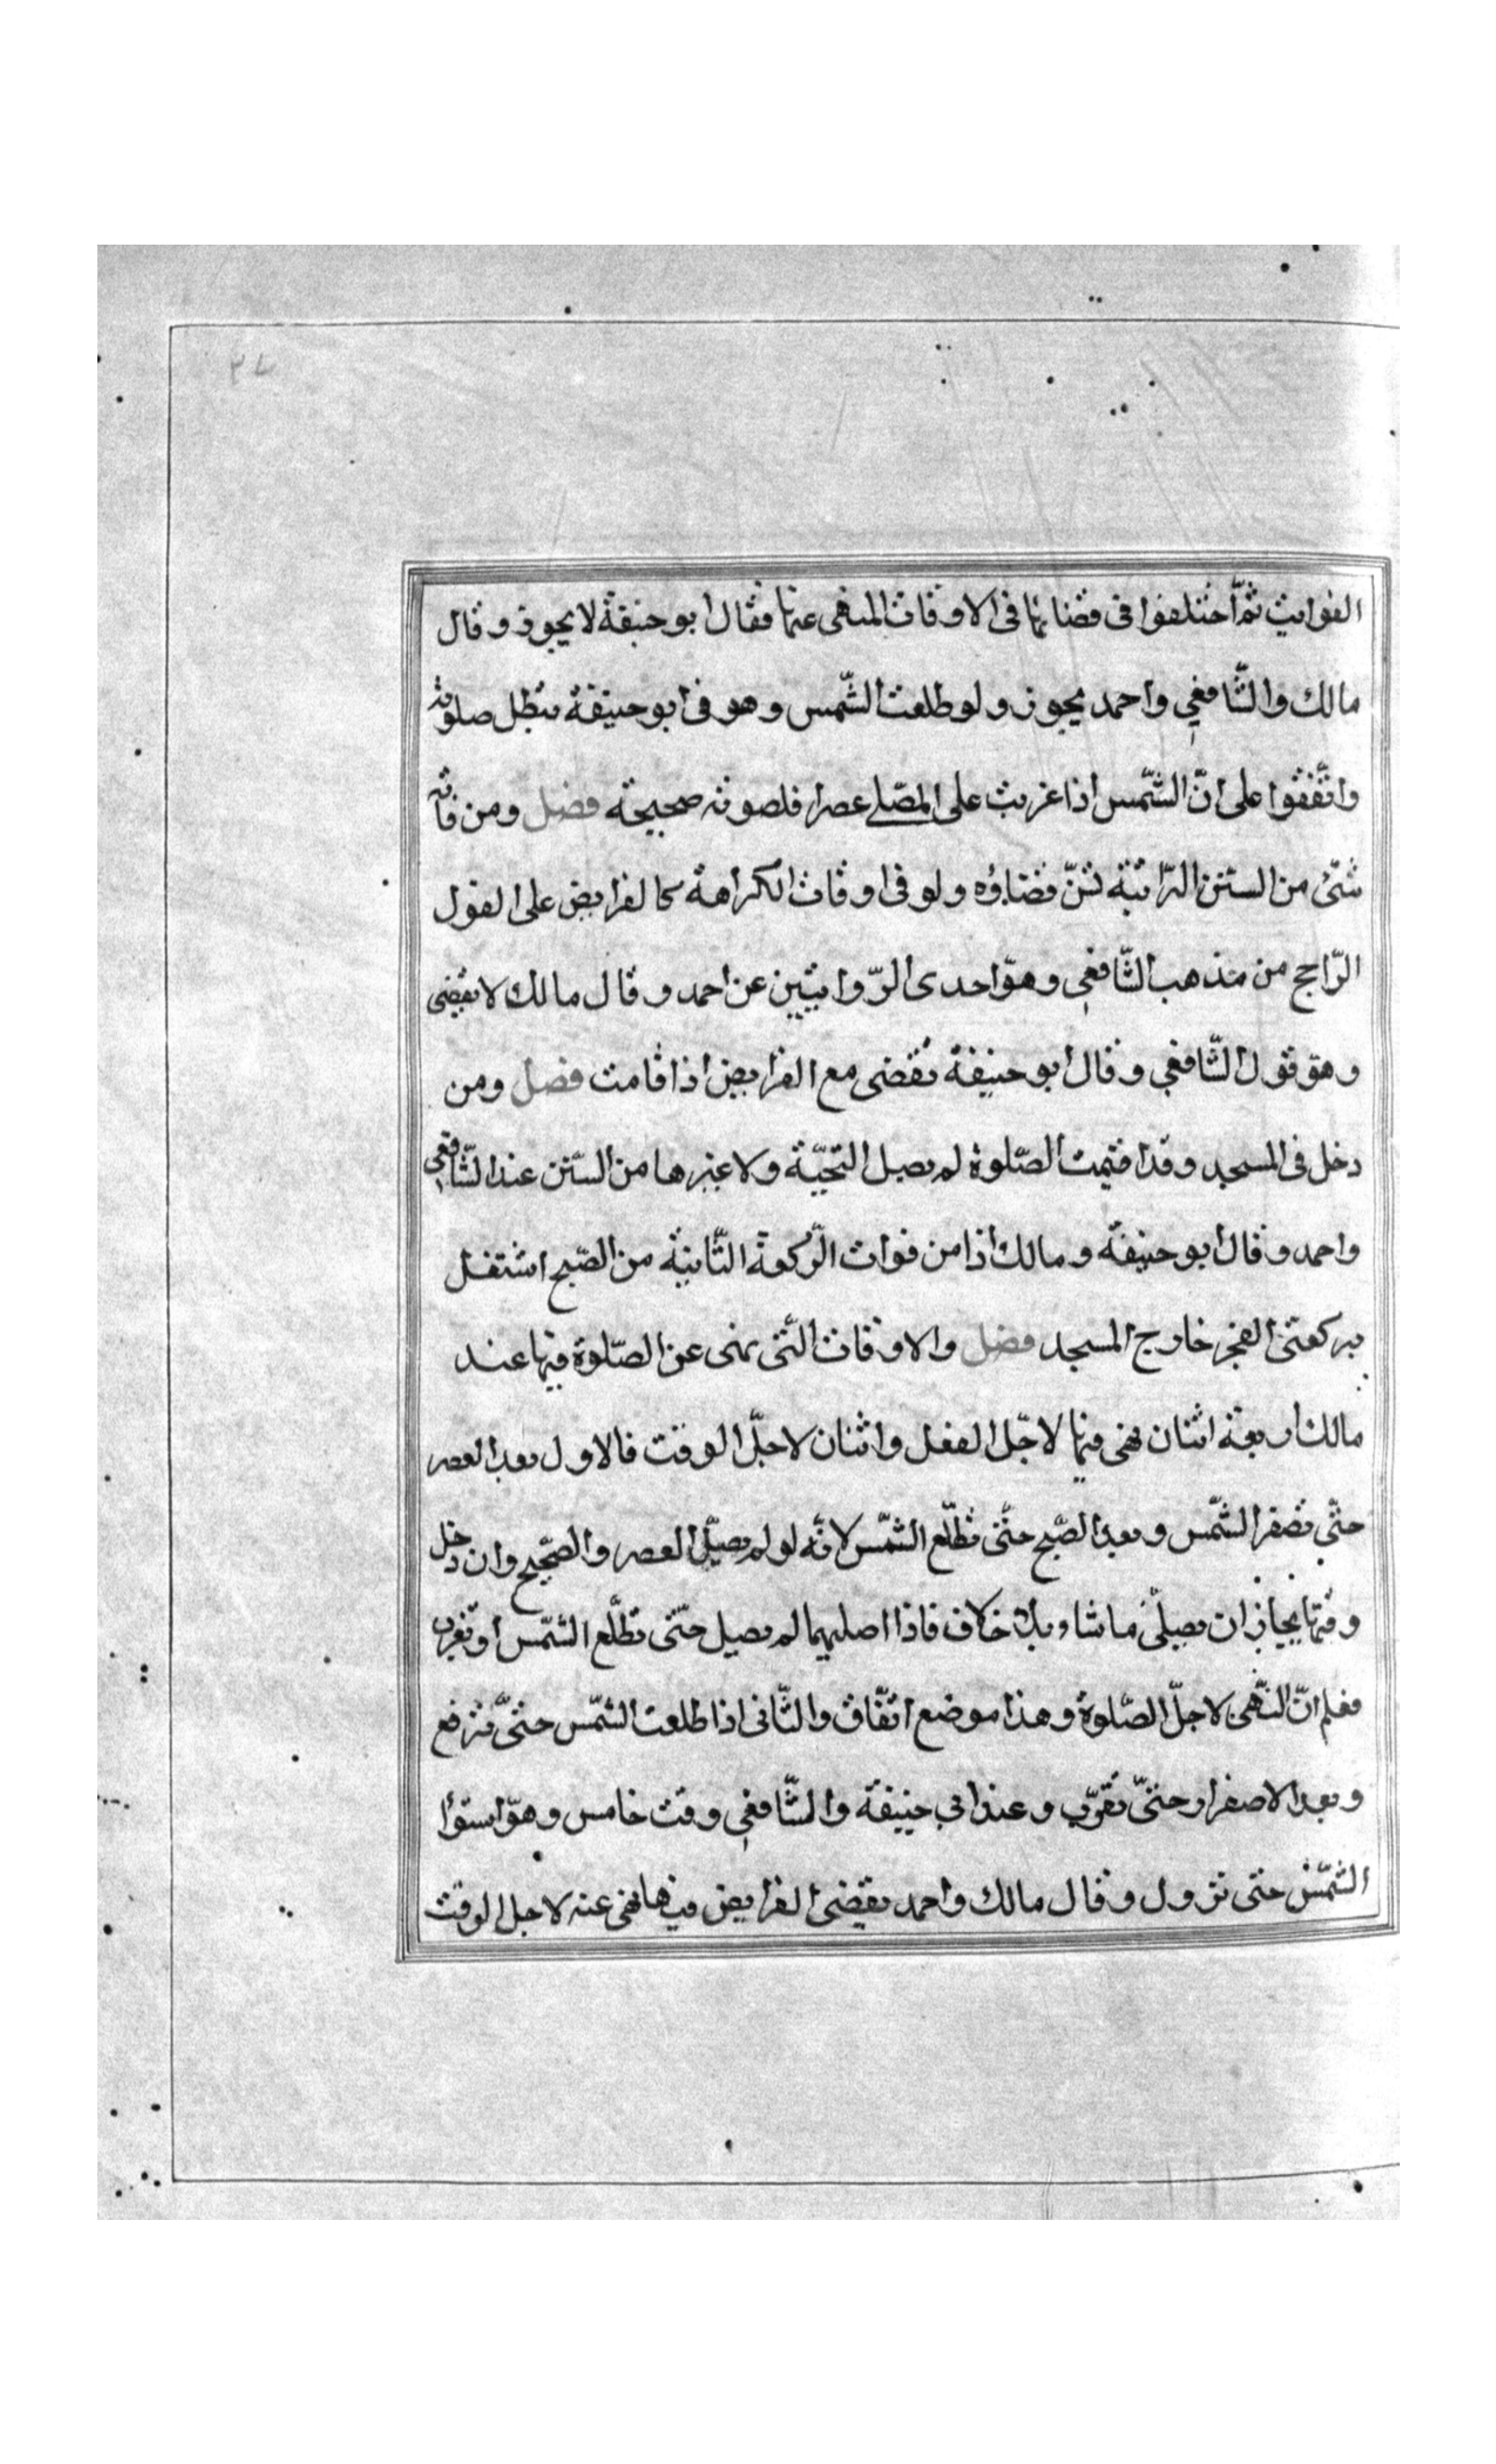 ٣٧
الفوايت ثمّ اختلفوا فى قضائها فى الاوقات المنهى عنها فقال ابو حنيفة لا يجوز وقال
مالك والشّافعي واحمد يجوز ولو طلعت الشّمس وهو فى ابو حنيفة تبطل صلوته
واتّفقوا على انّ الشّمس اذا غربت على المصّلى عصرا فلصوته صحيحة فصل ومن فاته
شئ من السنن الرّاتبة تسنّ قضاؤه ولو فى اوقات الكراهة كالفرايض على القول
الرّاجح من مذهب الشّافعي وهو احدى الرّوايتين عن احمد وقال مالك لا يقضى
وهو قول الشّافعي وقال ابو حنيفة تقضى مع الفرايض اذا قامت فصل ومن
دخل فى المسجد وقد اقيمت الصّلوة لم يصل التحيّة ولا غيرها من السّنن عند الشّافعي
واحمد وقال ابو حنيفة ومالك اذا من فوات الرّكعة الثّانية من الصّبح اشتغل
بركعتى الفجر خارج المسجد فصل والاوقات الّتى نهى عن الصّلوة فيها عند
مالك اربعة اثنان نهى فيها لاجل الفعل واثنان لاجل الوقت فالاول بعد العصر
حتّى تصفر الشّمس وبعد الصّبح حتّى تطلع الشّمس لانّه لو لم يصلّ العصر والصّبح وان دخل
وقتهايجاز ان يصلّى ما شاء بلا خلاف فاذا اصليهما لم يصيل حتّى تطلع الشّمس او تغرب
فعلم انّ النّهى لاجل الصّلوة وهذا موضع اتّفاق والثّانى اذا طلعت الشّمس حتّى ترتفع
وبعد الاصفرار حتّى تغرب وعند ابى حنيفة والشّافعي وقت خامس وهو استوا
الشّمس حتى تزول وقال مالك واحمد يقضى الفرايض فيها نهى عنه لاجل الوقت